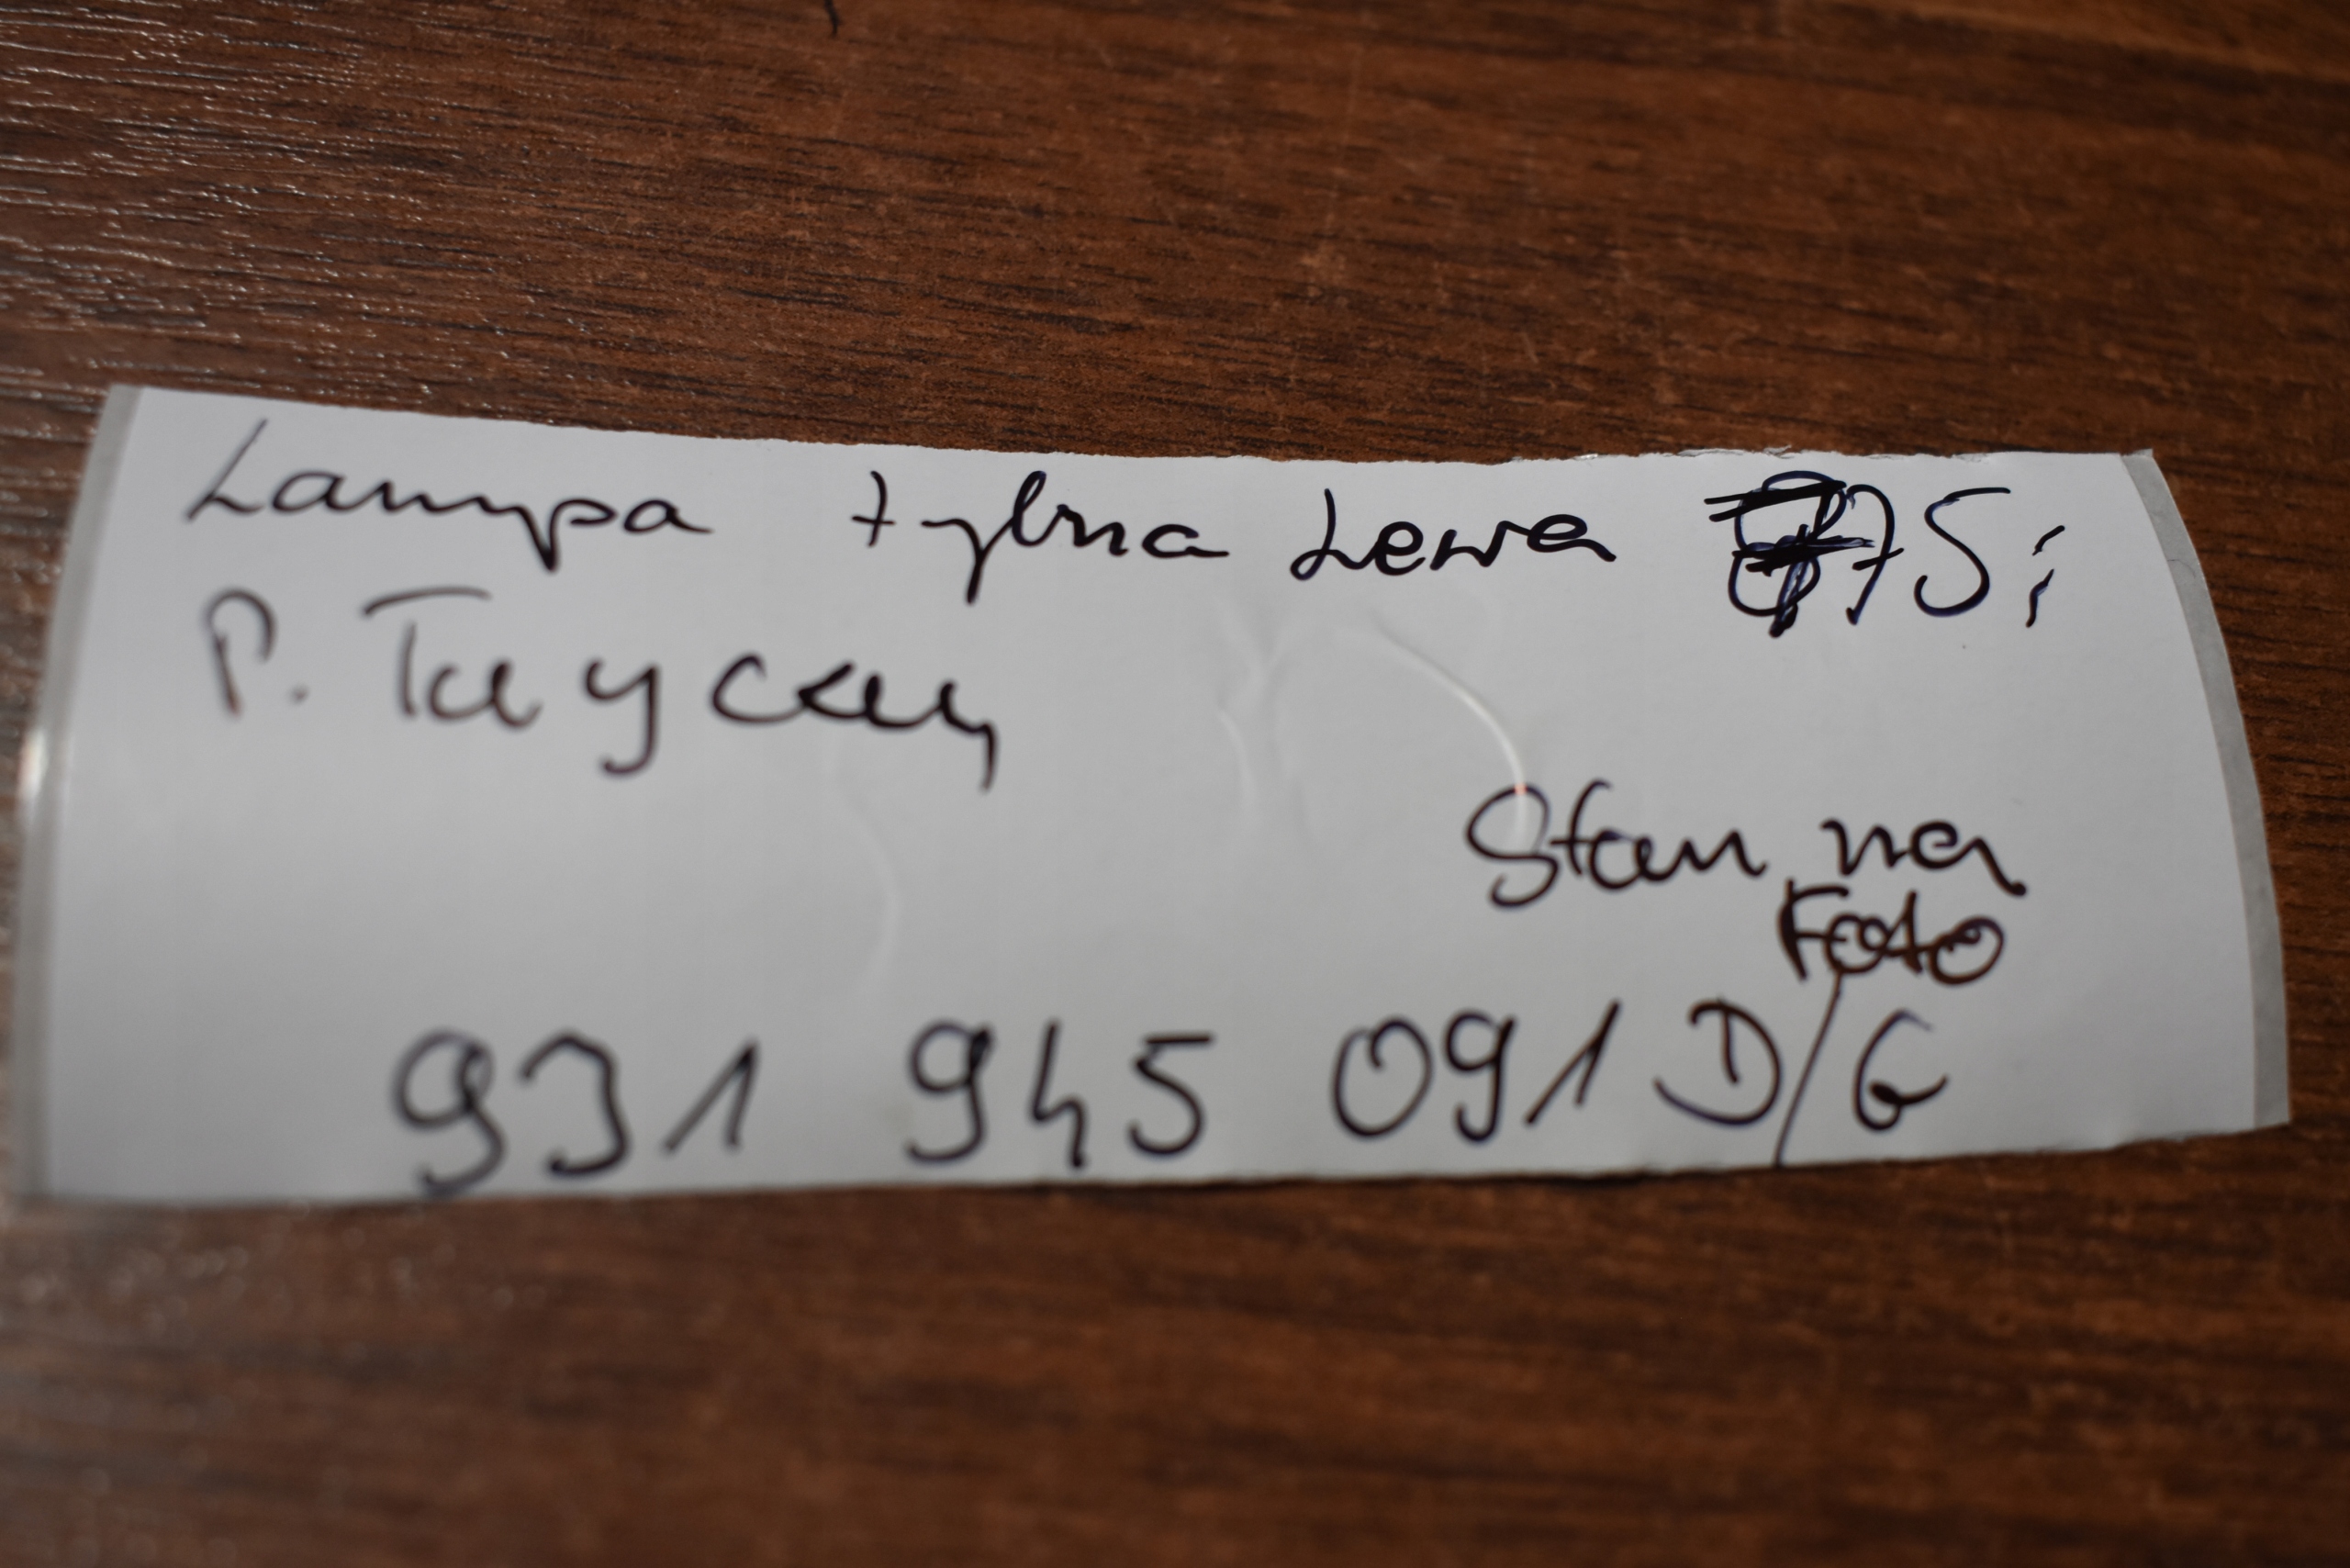 Lampa tylna Lewa 75;
P. Taycan
Stan na
Foto
931 945 091 D/G